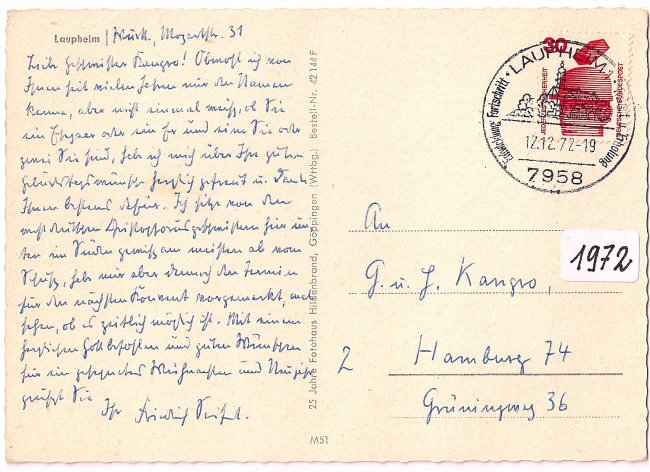 Laupheim / Württ., Mozartstr. 31
Liebe Geschwister Kangro! Obwohl ich von
Ihnen seit vielen Jahren nur den Namen
kenne, aber nicht einmal weiß, ob Sie
ein Ehepaar oder ein Er und eine Sie oder
zwei Sie sind, hab ich mich über Ihre guten
Geburtstagswünsche herzlich gefreut u. danke
Ihnen bestens dafür. Ich sitze von den
westdeutschen Christophorusgeschwistern hier un-
ten im Süden gewiß am meisten ab vom
Schuß, habe mir aber dennoch den Termin
für den nächsten Konvent vorgemerkt, mal
sehen, ob es zeitlich möglich ist. Mit einem
herzlichen Gottbefohlen und guten Wünschen
für ein gesegnetes Weihnachten und Neujahr
grüßt Sie
Ihr Friedrich Seifert.
25 Jahre Fotohaus Hildenbrand, Göppingen (Wttbg.) Bestell-Nr. 42 144 F
M51
30
JEDERZEIT SICHERHEIT
DEUTSCHE BUNDESPOST
LAUPHEIM
Entwicklung Fortschritt
Erholung
12.12.72-19
7958
1972
An
G. u. J. Kangro,
2 Hamburg 74
Grüningweg 36